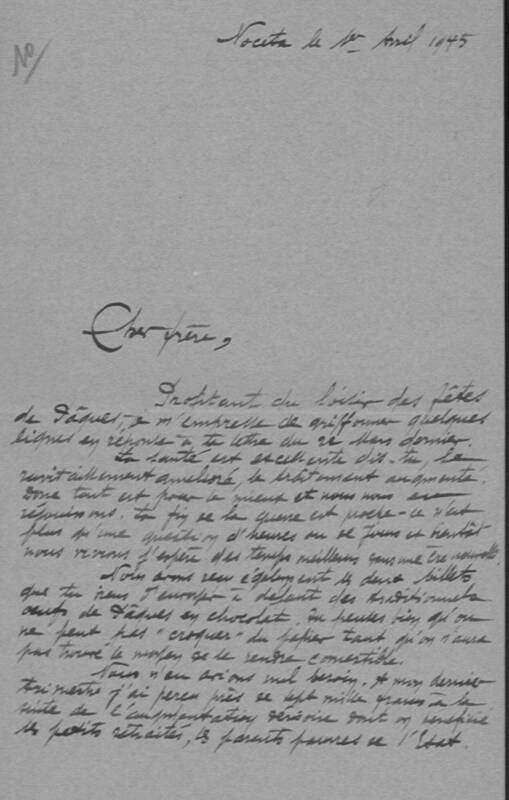 No
Noceta le 1er Avril 1945
Cher frère,
Profitant du loisir des fêtes
de Pâques, je m'empresse de griffonner quelques
lignes en réponse à ta lettre du 22 Mars dernier.
La santé est excellente dis-tu, le
ravitaillement amélioré, le traitement augmenté.
Donc tout est pour le mieux et nous nous en
réjouissons. La fin de la guerre est proche - ce n'est
plus qu'une question d'heures ou de jours et bientôt
nous vivrons j'espère des temps meilleurs
Nous avons reçu également les deux billets
que tu nous a défaut des traditionnels
oeufs de Pâques en chocolat. bien qu'on
ne peut pas "croquer" du papier tant qu'on n'aura
pas trouvé le moyen de le rendre comestible.
Nous n'en avions nul besoin. A mon dernier
trimestre j'ai perçu près de sept mille francs à la
suite de l'augmentation dérisoire dont on bénéficié
les petits retraités, les parents pauvres de l'Etat.